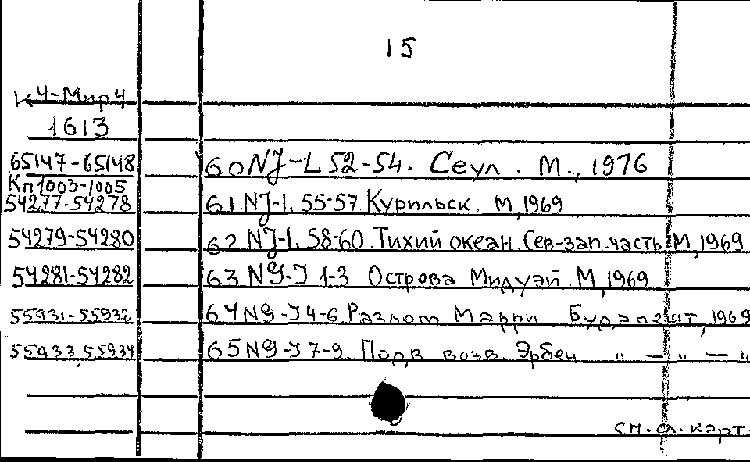 15
К4-Мир 4
1613
65147-65148 60 NJ-L 52-54. Сеул. М., 1976
Кп 1003-1005
54277-54278 61 NJ-L 55-57 Курильск. М, 1969
54279-54280 62 NJ-L 58-60. Тихий океан. Сев-зап. часть. М, 1969
54281-54282 63 N9-J 1-3 Острова Мидуэй М, 1969
55931-55932 64 N9-J 4-6. Разлом Марри Будапешт, 1969
55933, 55934 65 N9-J 7-9. Подв. возв. Эрбен " — " — "
см. сл. карт.